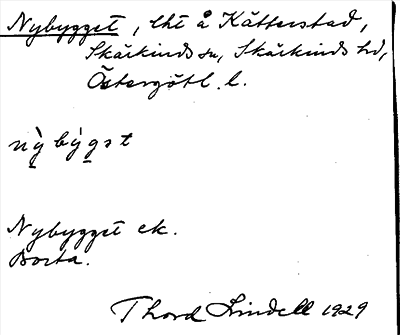 Nybygget, lht å Kätterstad,
Skärkinds sn, Skärkinds hd,
Östergötl. l.
nỳ bý gət
Nybygget ek.
Borta.
Thord Lindell 1929